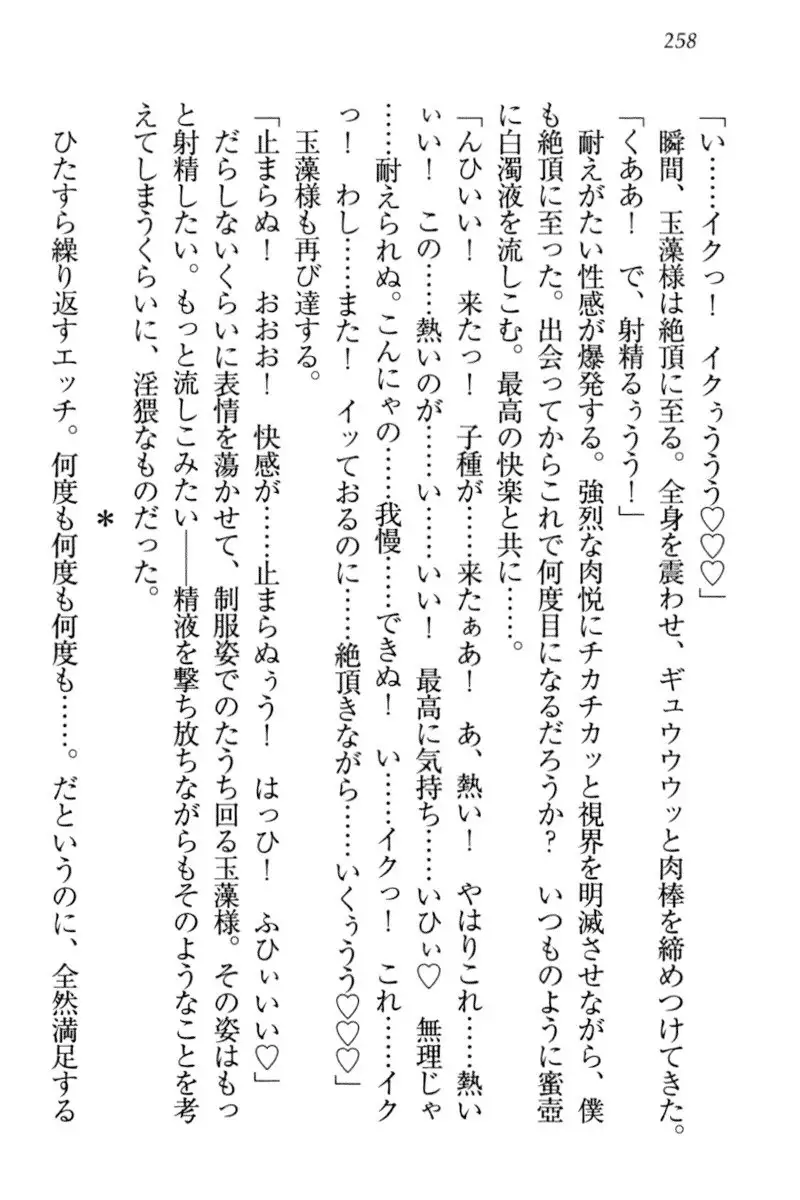 258
「い……イクっ！　イクぅううう♡♡♡」
瞬間、玉藻様は絶頂に至る。全身を震わせ、ギュウウウッと肉棒を締めつけてきた。
「くああ！　で、射精るぅうう！」
耐えがたい性感が爆発する。強烈な肉悦にチカチカッと視界を明滅させながら、僕
も絶頂に至った。出会ってからこれで何度目になるだろうか？　いつものように蜜壺
に白濁液を流しこむ。最高の快楽と共に……。
「んひいい！　来たっ！　子種が……来たぁあ！　あ、熱い！　やはりこれ……熱い
ぃい！　この……熱いのが……い……いい！　最高に気持ち……いひぃ♡　無理じゃ
……耐えられぬ。こんにゃの……我慢……できぬ！　い……イクっ！　これ……イク
っ！　わし……また！　イッておるのに……絶頂きながら……いくぅうう♡♡♡」
玉藻様も再び達する。
「止まらぬ！　おおお！　快感が……止まらぬぅう！　はっひ！　ふひぃいい♡」
だらしないくらいに表情を蕩かせて、制服姿でのたうち回る玉藻様。その姿はもっ
と射精したい。もっと流しこみたい――精液を撃ち放ちながらもそのようなことを考
えてしまうくらいに、淫猥なものだった。
＊
ひたすら繰り返すエッチ。何度も何度も何度も……。だというのに、全然満足する